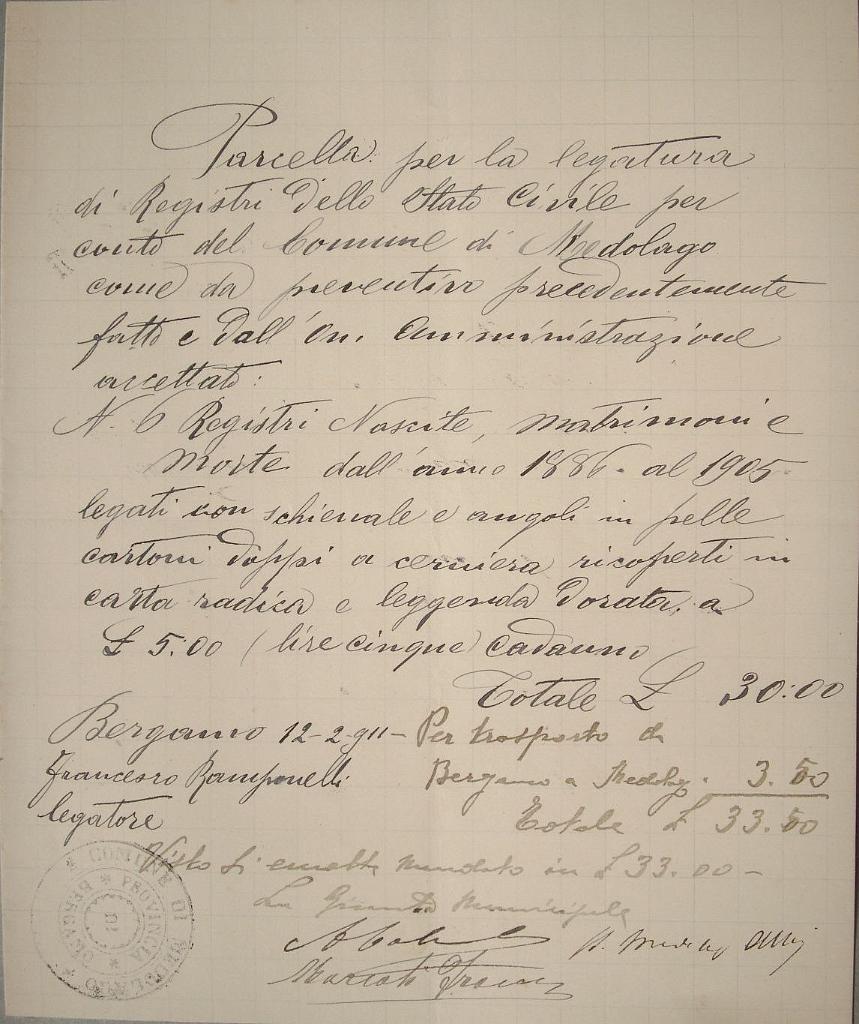 Parcella per la legatura
di Registri Dello Stato Civile per
conto del Comune di Medolago
come da preventivo precedentemente
fatto e dall'On. Amministrazione
accettato:
N. 6 Registri Nascite, Matrimoni e
Morte dall'anno 1886 al 1905
legati con schienale e angoli in pelle
cartoni doppi a cerniera ricoperti in
carta radica e leggenda Dorata, a
£ 5:00 (lire cinque) cadauno
Totale £ 30:00
Bergamo 12-2-911-
Francesco Ramponelli
legatore
Per trasporto da
Bergamo a Medolag. 3.50
Totale £ 33.50
Visto si emette mandato in £ 33.00 -
La Giunta Municipale
COMUNE DI MEDOLAGO
PROVINCIA DI BERGAMO